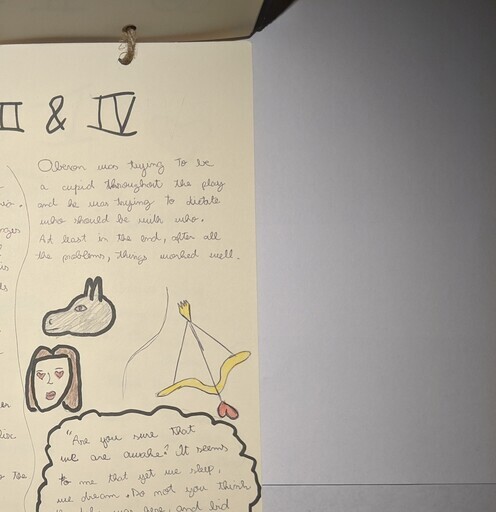 II & IV
Oberon was trying to be
a cupid throughout the play
and he was trying to dictate
who should be with who.
At least in the end, after all
the problems, things worked well.
"Are you sure that
we are awake? It seems
to me that yet we sleep,
we dream. Do not you think
and bid